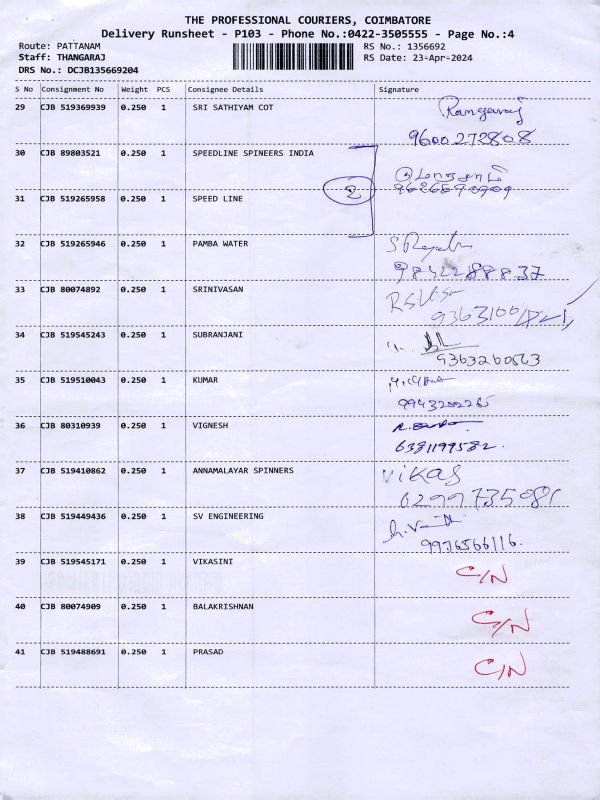 THE PROFESSIONAL COURIERS, COIMBATORE
Delivery Runsheet - P103 - Phone No.:0422-3505555 - Page No.:4
Route: PATTANAM RS No.: 1356692
Staff: THANGARAJ RS Date: 23-Apr-2024
DRS No.: DCJB135669204
S No Consignment No Weight PCS Consignee Details Signature
29 CJB 519369939 0.250 1 SRI SATHIYAM COT Rangaraj
9600272808
30 CJB 89803521 0.250 1 SPEEDLINE SPINEERS INDIA
2
31 CJB 519265958 0.250 1 SPEED LINE
32 CJB 519265946 0.250 1 PAMBA WATER
9842288837
33 CJB 80074892 0.250 1 SRINIVASAN
34 CJB 519545243 0.250 1 SUBRANJANI
35 CJB 519510043 0.250 1 KUMAR
36 CJB 80310939 0.250 1 VIGNESH
6381199582.
37 CJB 519410862 0.250 1 ANNAMALAYAR SPINNERS vikas
6299735981
38 CJB 519449436 0.250 1 SV ENGINEERING
9976566116.
39 CJB 519545171 0.250 1 VIKASINI C/N
40 CJB 80074909 0.250 1 BALAKRISHNAN C/N
41 CJB 519488691 0.250 1 PRASAD C/N